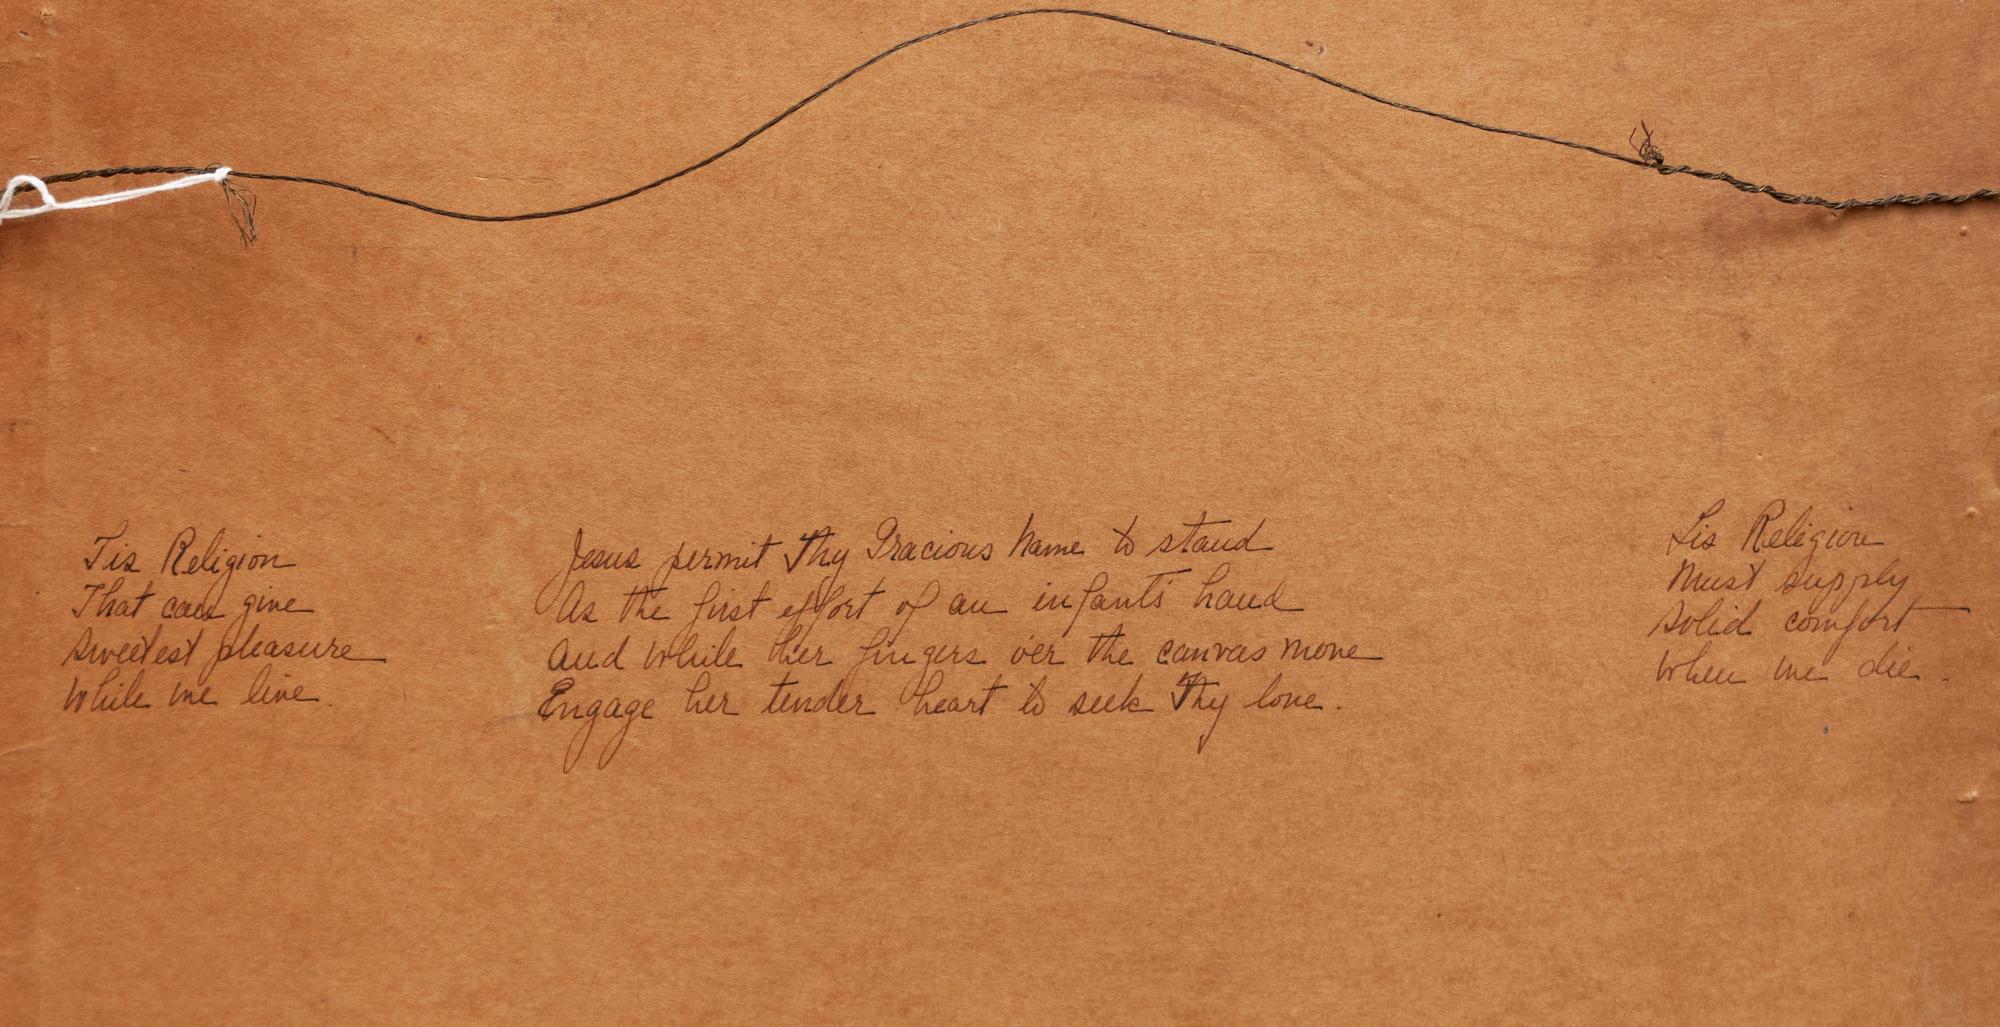 Tis Religion
That can give
Sweetest pleasure
While we live.
Jesus permit Thy Gracious Name to stand
As the first effort of an infant's hand
And while her fingers o'er the canvas move
Engage her tender heart to seek Thy love.
Tis Religion
Must supply
Solid comfort
When we die.